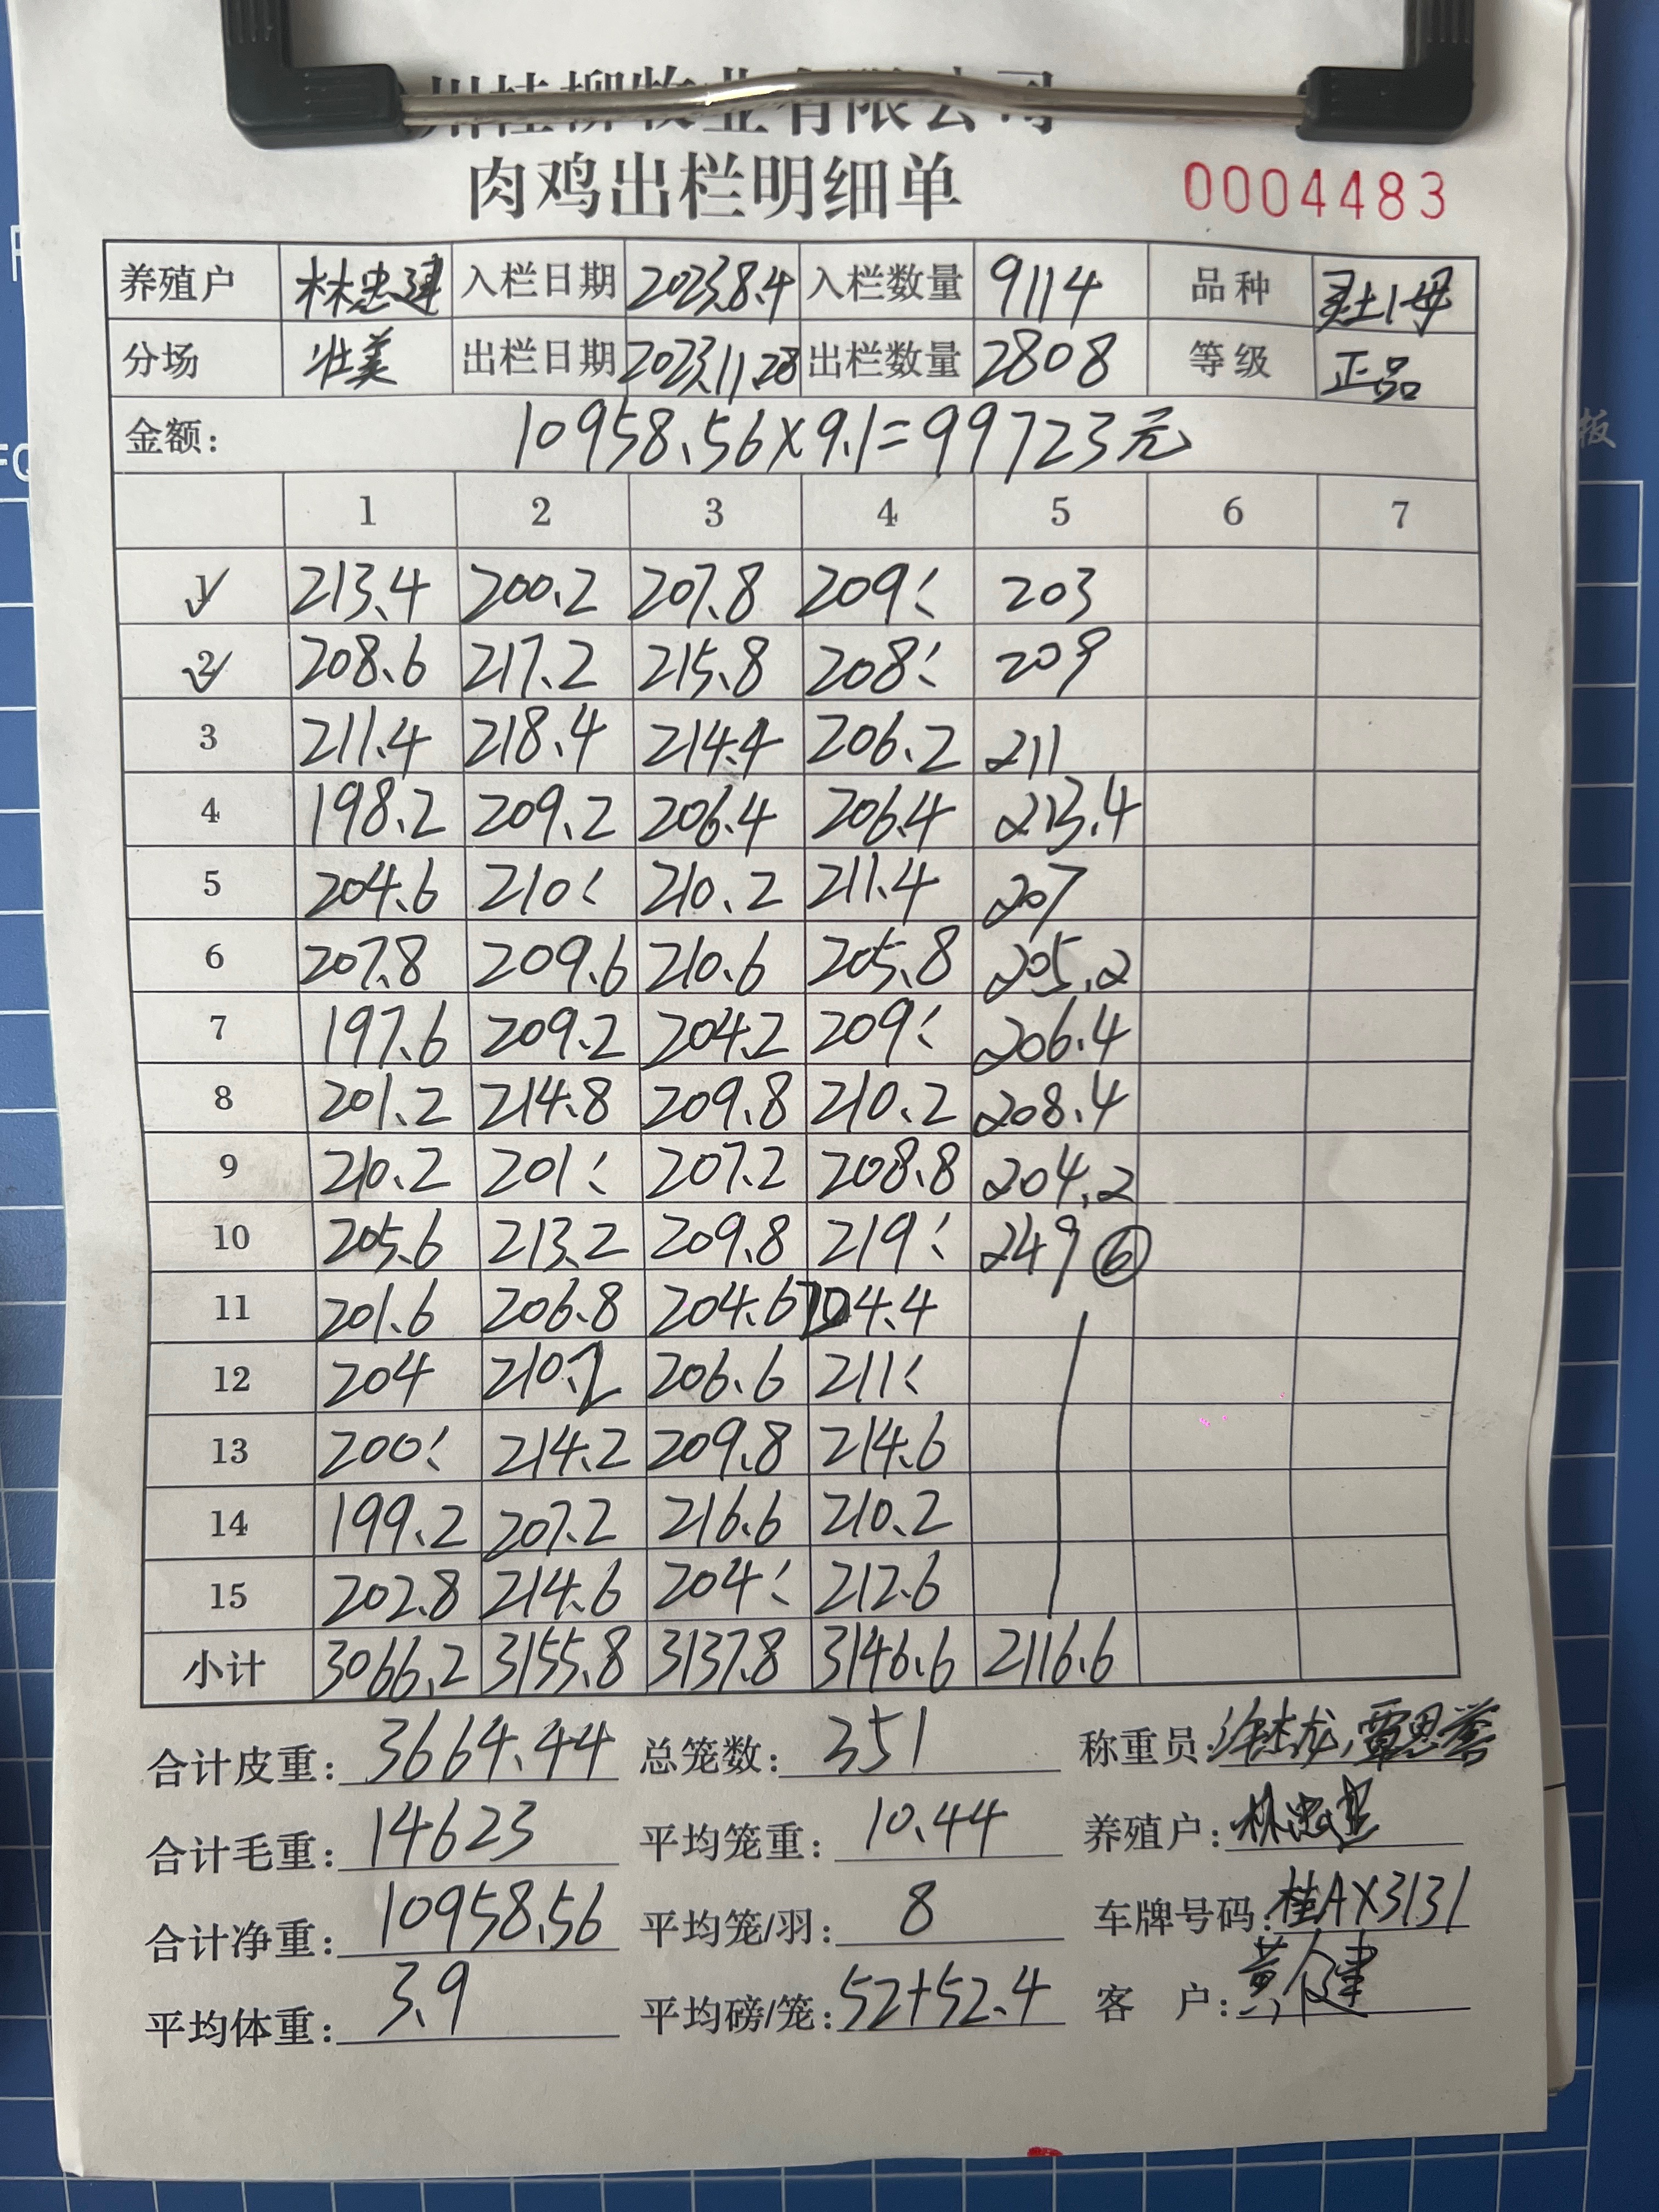 川桂柳牧业有限公司
肉鸡出栏明细单 0004483
养殖户 林忠建 入栏日期 2023.8.4 入栏数量 9114 品种 灵土1母
分场 壮美 出栏日期 2023.11.28 出栏数量 2808 等级 正品
金额: 10958.56×9.1=99723元
1 2 3 4 5 6 7
1 213.4 200.2 207.8 209 203
2 208.6 217.2 215.8 208 209
3 211.4 218.4 214.4 206.2 211
4 198.2 209.2 206.4 206.4 213.4
5 204.6 210 210.2 211.4 207
6 207.8 209.6 210.6 205.8 205.2
7 197.6 209.2 204.2 209 206.4
8 201.2 214.8 209.8 210.2 208.4
9 210.2 201 207.2 208.8 204.2
10 205.6 213.2 209.8 219 249 ⑥
11 201.6 206.8 204.6 204.4
12 204 210.2 206.6 211
13 200 214.2 209.8 214.6
14 199.2 207.2 216.6 210.2
15 202.8 214.6 204 212.6
小计 3066.2 3155.8 3137.8 3146.6 2116.6
合计皮重: 3664.44 总笼数: 351 称重员: 许杰龙、覃思誉
合计毛重: 14623 平均笼重: 10.44 养殖户: 林忠建
合计净重: 10958.56 平均笼/羽: 8 车牌号码: 桂AX3131
平均体重: 3.9 平均磅/笼: 52+52.4 客 户: 黄健
板